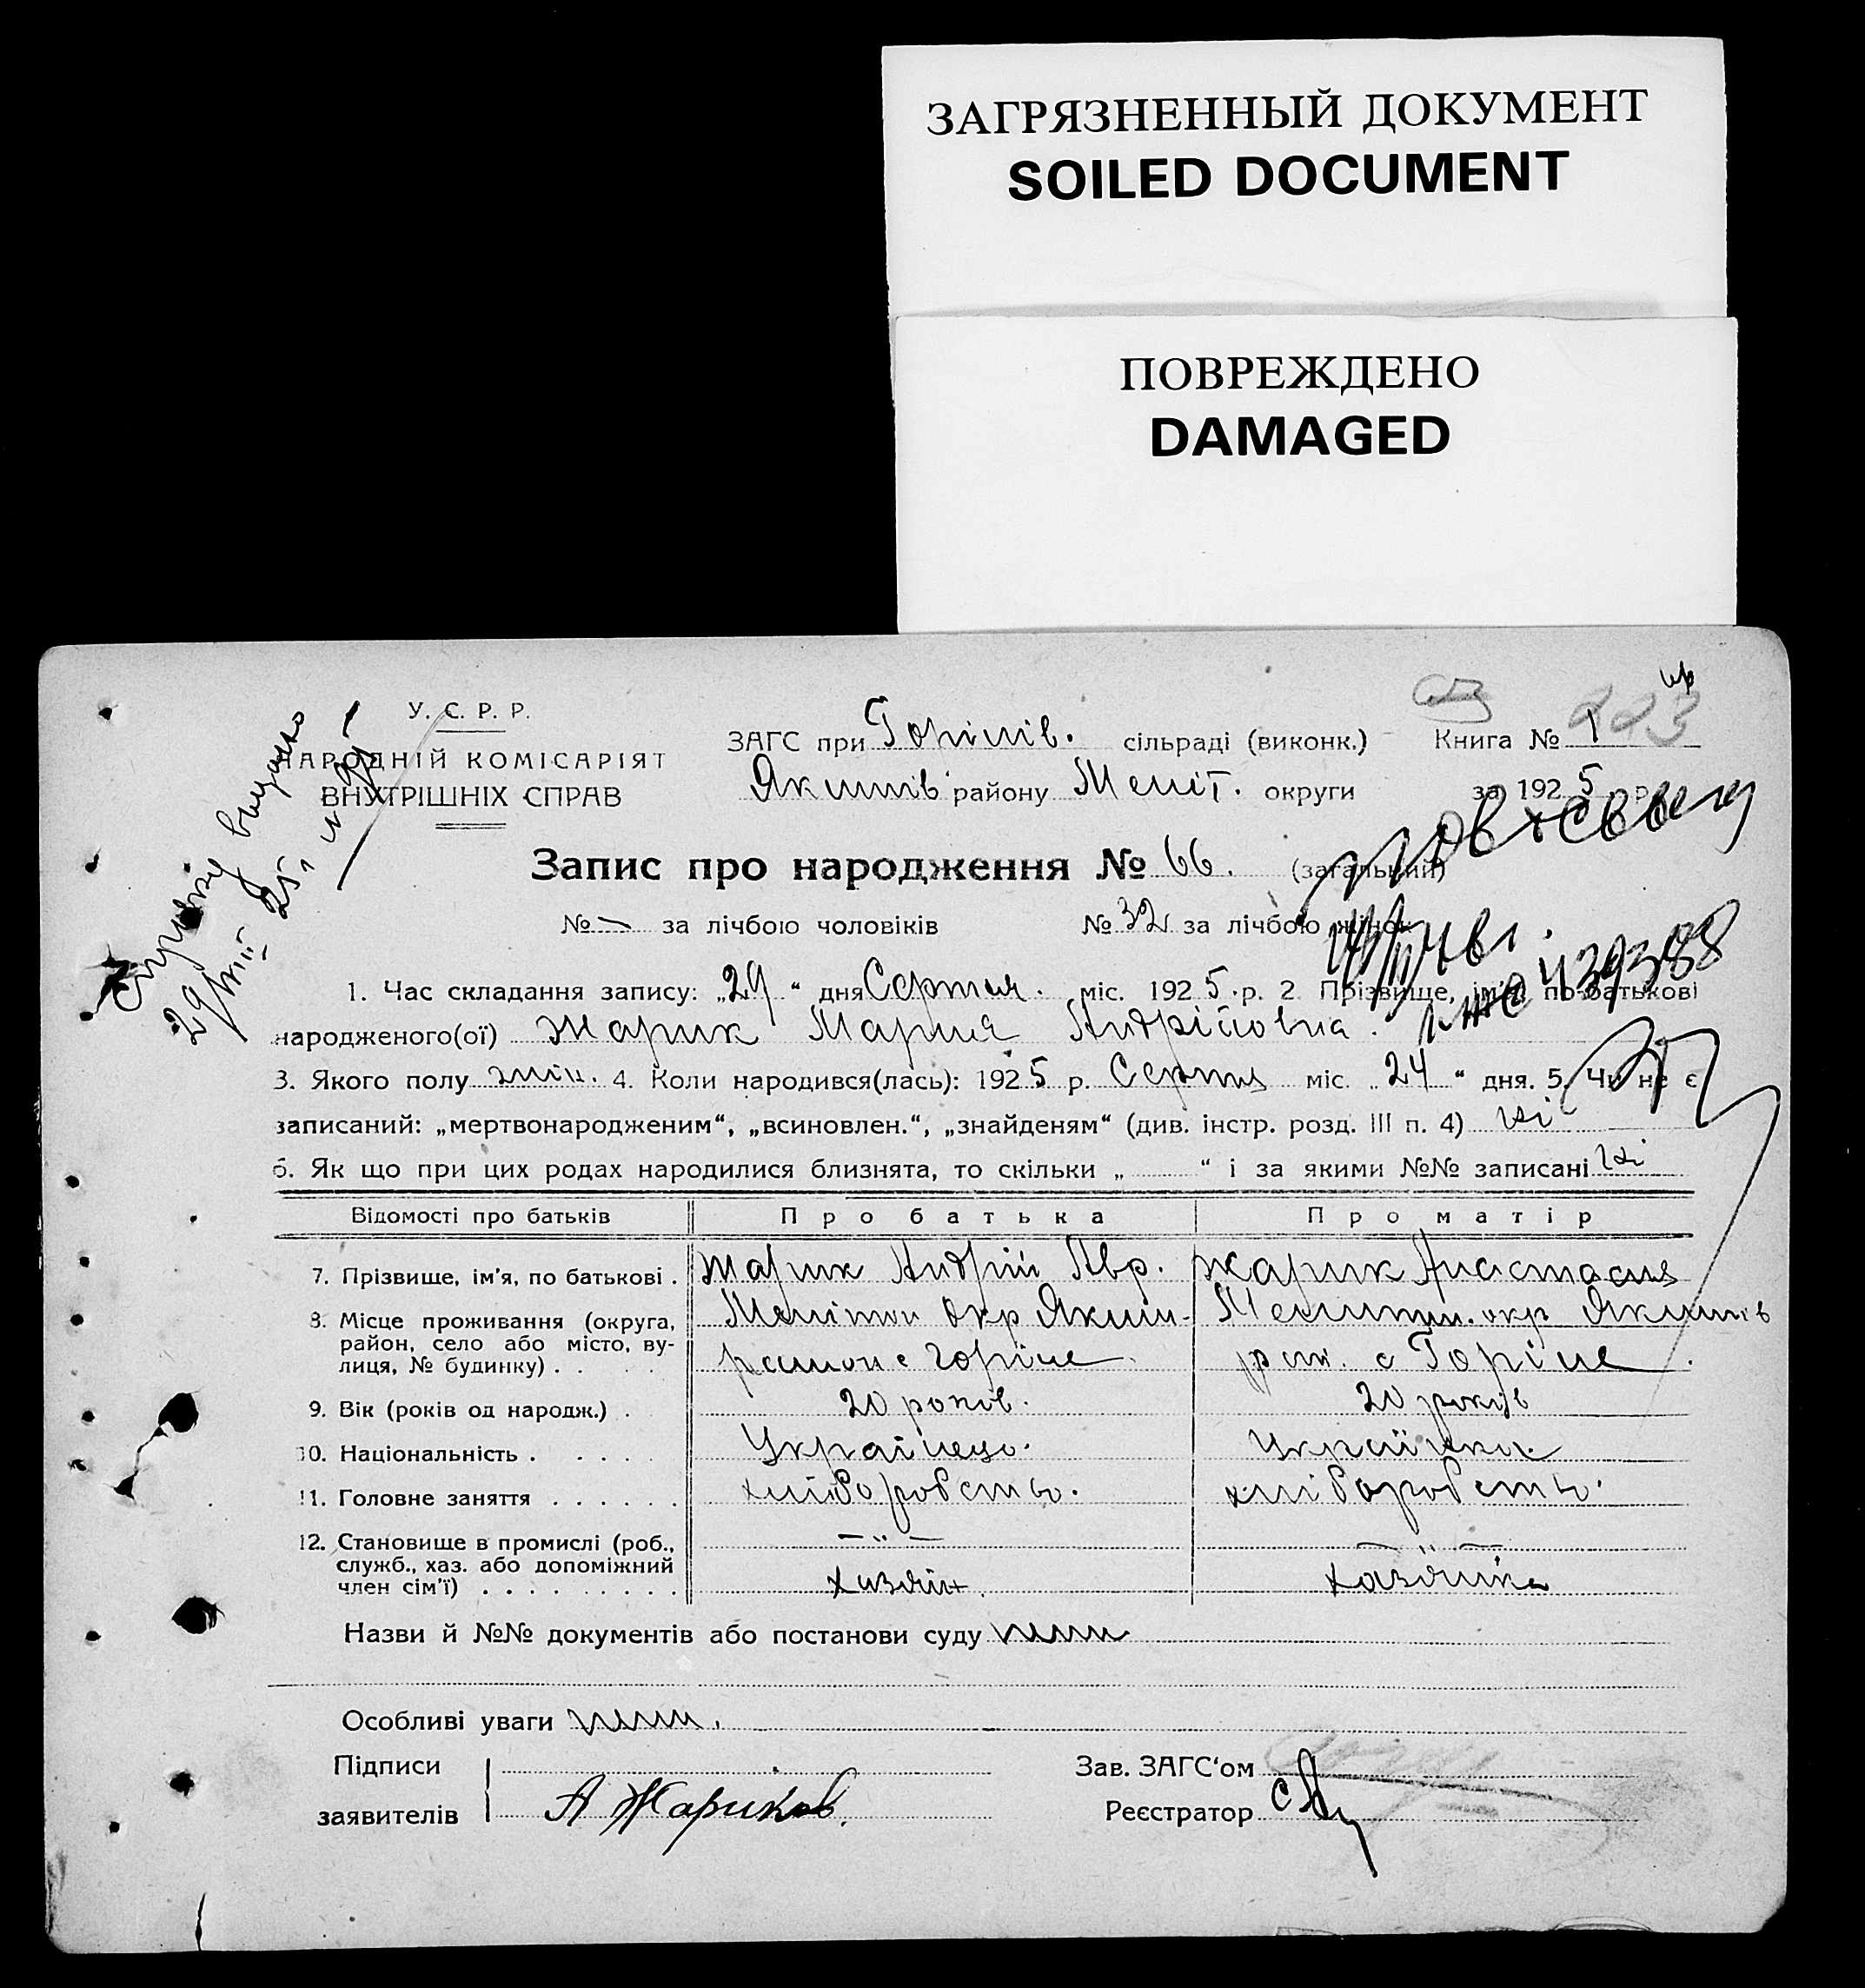 ЗАГРЯЗНЕННЫЙ ДОКУМЕНТ
SOILED DOCUMENT
ПОВРЕЖДЕНО
DAMAGED
223
У. С. Р. Р.
НАРОДНІЙ КОМІСАРІЯТ
ВНУТРІШНІХ СПРАВ
ЗАГС при Горінів. сільраді (виконк.) Книга № 1
Якимів району Меліт. округи за 1925 р.
Запис про народження № 66. (загальний)
№ — за лічбою чоловіків № 32 за лічбою жінок
1. Час складання запису: „29“ дня Серпня. міс. 1925 р. 2. Прізвище, ім'я, по-батькові
народженого(ої) Жарик Мария Андріїовна.
3. Якого полу жін. 4. Коли народився(лась): 1925 р. Серпня міс. „24“ дня. 5. Чи не є
записаний: „мертвонародженим“, „всиновлен.“, „знайденям“ (див. інстр. розд. III п. 4) ні
6. Як що при цих родах народилися близнята, то скільки „ “ і за якими №№ записані ні
Відомості про батьків Про батька Про матір
7. Прізвище, ім'я, по батькові . Жарик Андрій Авр. Жарик Анастасия
8. Місце проживання (округа, Мелітоп Окр Яким- Мелитоп. окр Якимів
район, село або місто, ву- район с Горіне рай. с Горіне.
лиця, № будинку) . .
9. Вік (років од народж.) . 20 років. 20 років
10. Національність . . . . . Українець. Українка.
11. Головне заняття . . . . . . хліборобство. хліборобство.
12. Становище в промислі (роб., — „ — — „ —
служб., хаз. або допоміжний хазяїн. хазяйка
член сім'ї) . . . . . . . . .
Назви й №№ документів або постанови суду нема
Особливі уваги нема.
Підписи Зав. ЗАГС'ом
заявителів А Жариков. Реєстратор